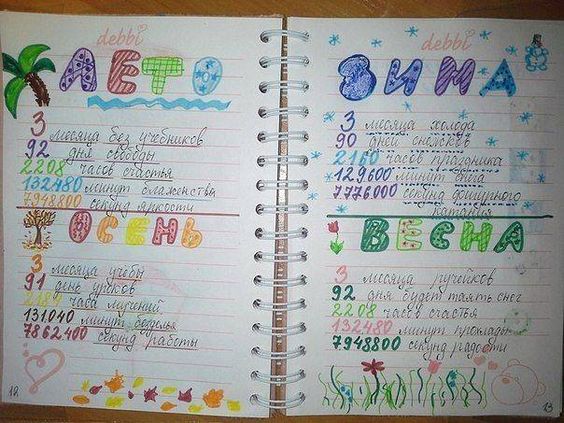 debbi
ЛЕТО
3 месяца без учебников
92 дня свободы
2208 часов счастья
132480 минут блаженства
7948800 секунд яркости
ОСЕНЬ
3 месяца учебы
91 день уроков
2184 часа мучений
131040 минут безделья
7862400 секунд работы
12
debbi
ЗИМА
3 месяца холода
90 дней снежков
2160 часов праздника
129600 минут снега
7776000 секунд
катания
ВЕСНА
3 месяца ручейков
92 дня будет таять снег
2208 часов счастья
132480 минут прохлады
7948800 секунд радости
13